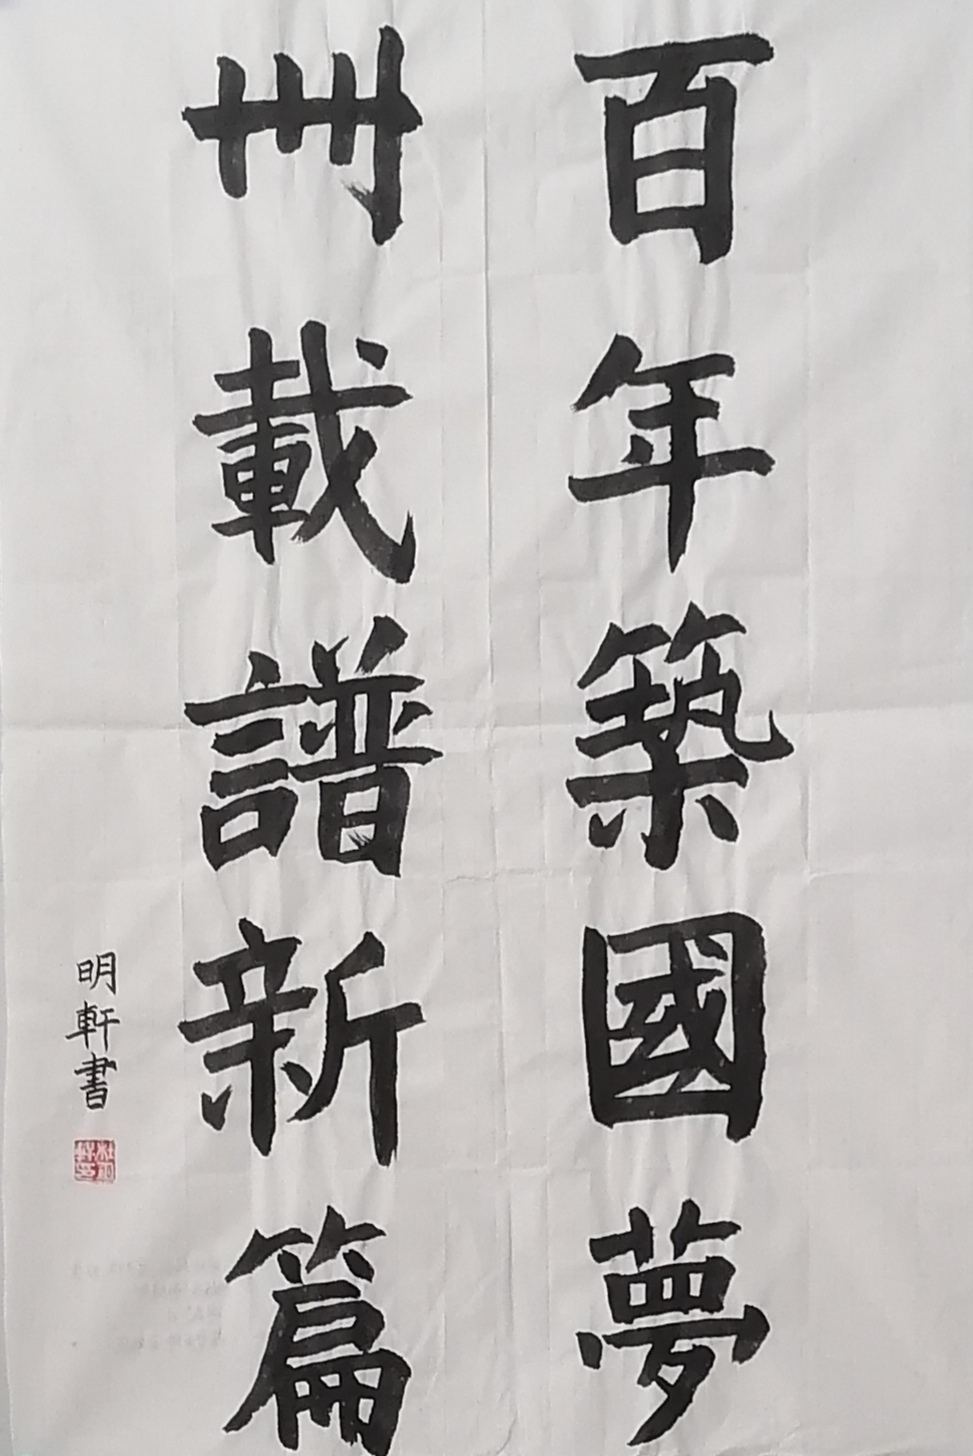 百年築國夢
卌載譜新篇
明軒書